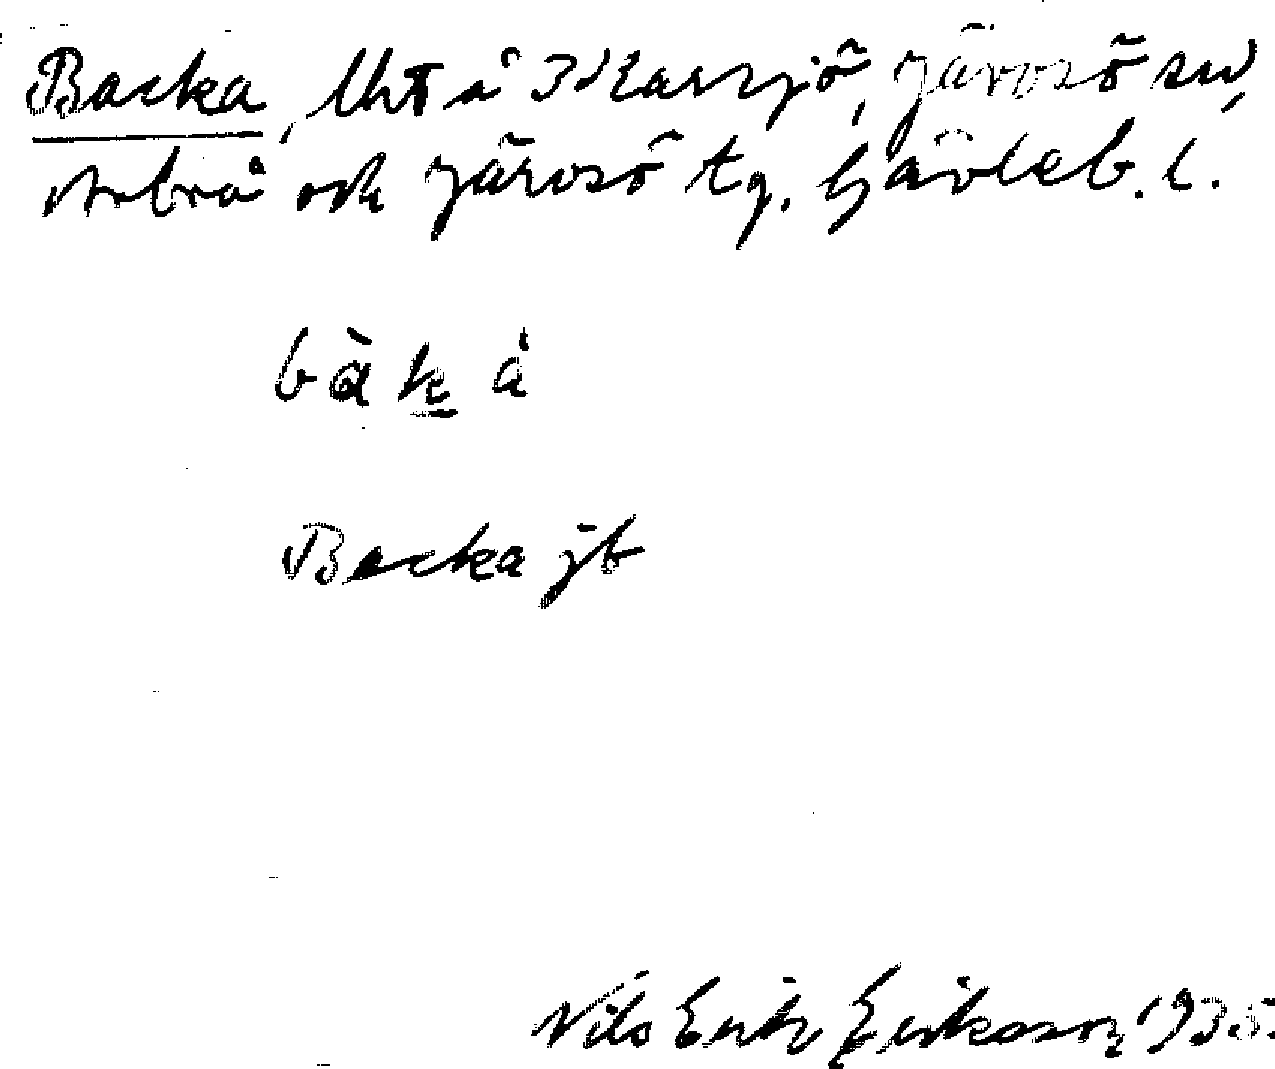 Backa, Uht å 3 Karsjö, Järvsö sn,
Arbrå och Järvsö tg. Gävleb. l.
bàkå
Backa jb
Nils Erik Eriksson 1935.